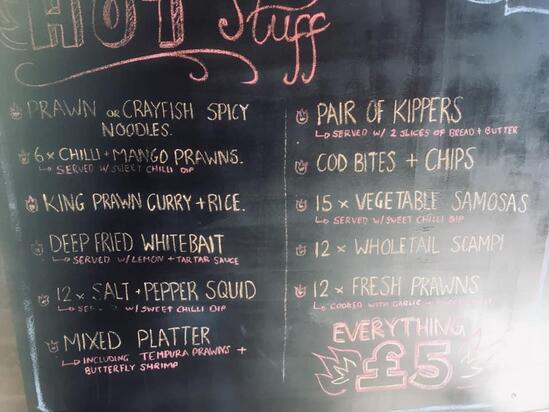 HOT Stuff
PRAWN OR CRAYFISH SPICY
NOODLES.
6 x CHILLI + MANGO PRAWNS.
SERVED W/ SWEET CHILLI DIP
KING PRAWN CURRY + RICE.
DEEP FRIED WHITEBAIT
SERVED W/ LEMON + TARTAR SAUCE
12 x SALT + PEPPER SQUID
SERVED W/ SWEET CHILLI DIP
MIXED PLATTER
INCLUDING TEMPURA PRAWNS +
BUTTERFLY SHRIMP
PAIR OF KIPPERS
SERVED W/ 2 SLICES OF BREAD + BUTTER
COD BITES + CHIPS
15 x VEGETABLE SAMOSAS
SERVED W/ SWEET CHILLI DIP
12 x WHOLETAIL SCAMPI
12 x FRESH PRAWNS
COOKED WITH GARLIC +
EVERYTHING
£5